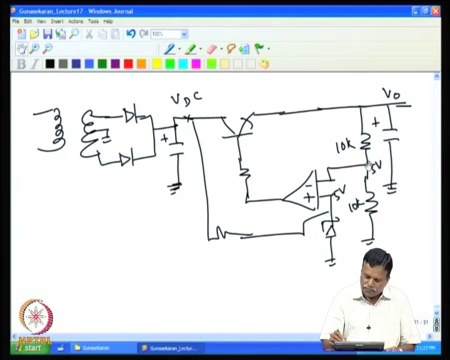 Gunasekaran_Lecture17 - Windows Journal
File Edit View Insert Actions Tools Help
100%
B I
VDC
VO
+
+
10k
5V
-
+
5V
10k
start
Gunasekaran
Gunasekaran_Lectu...